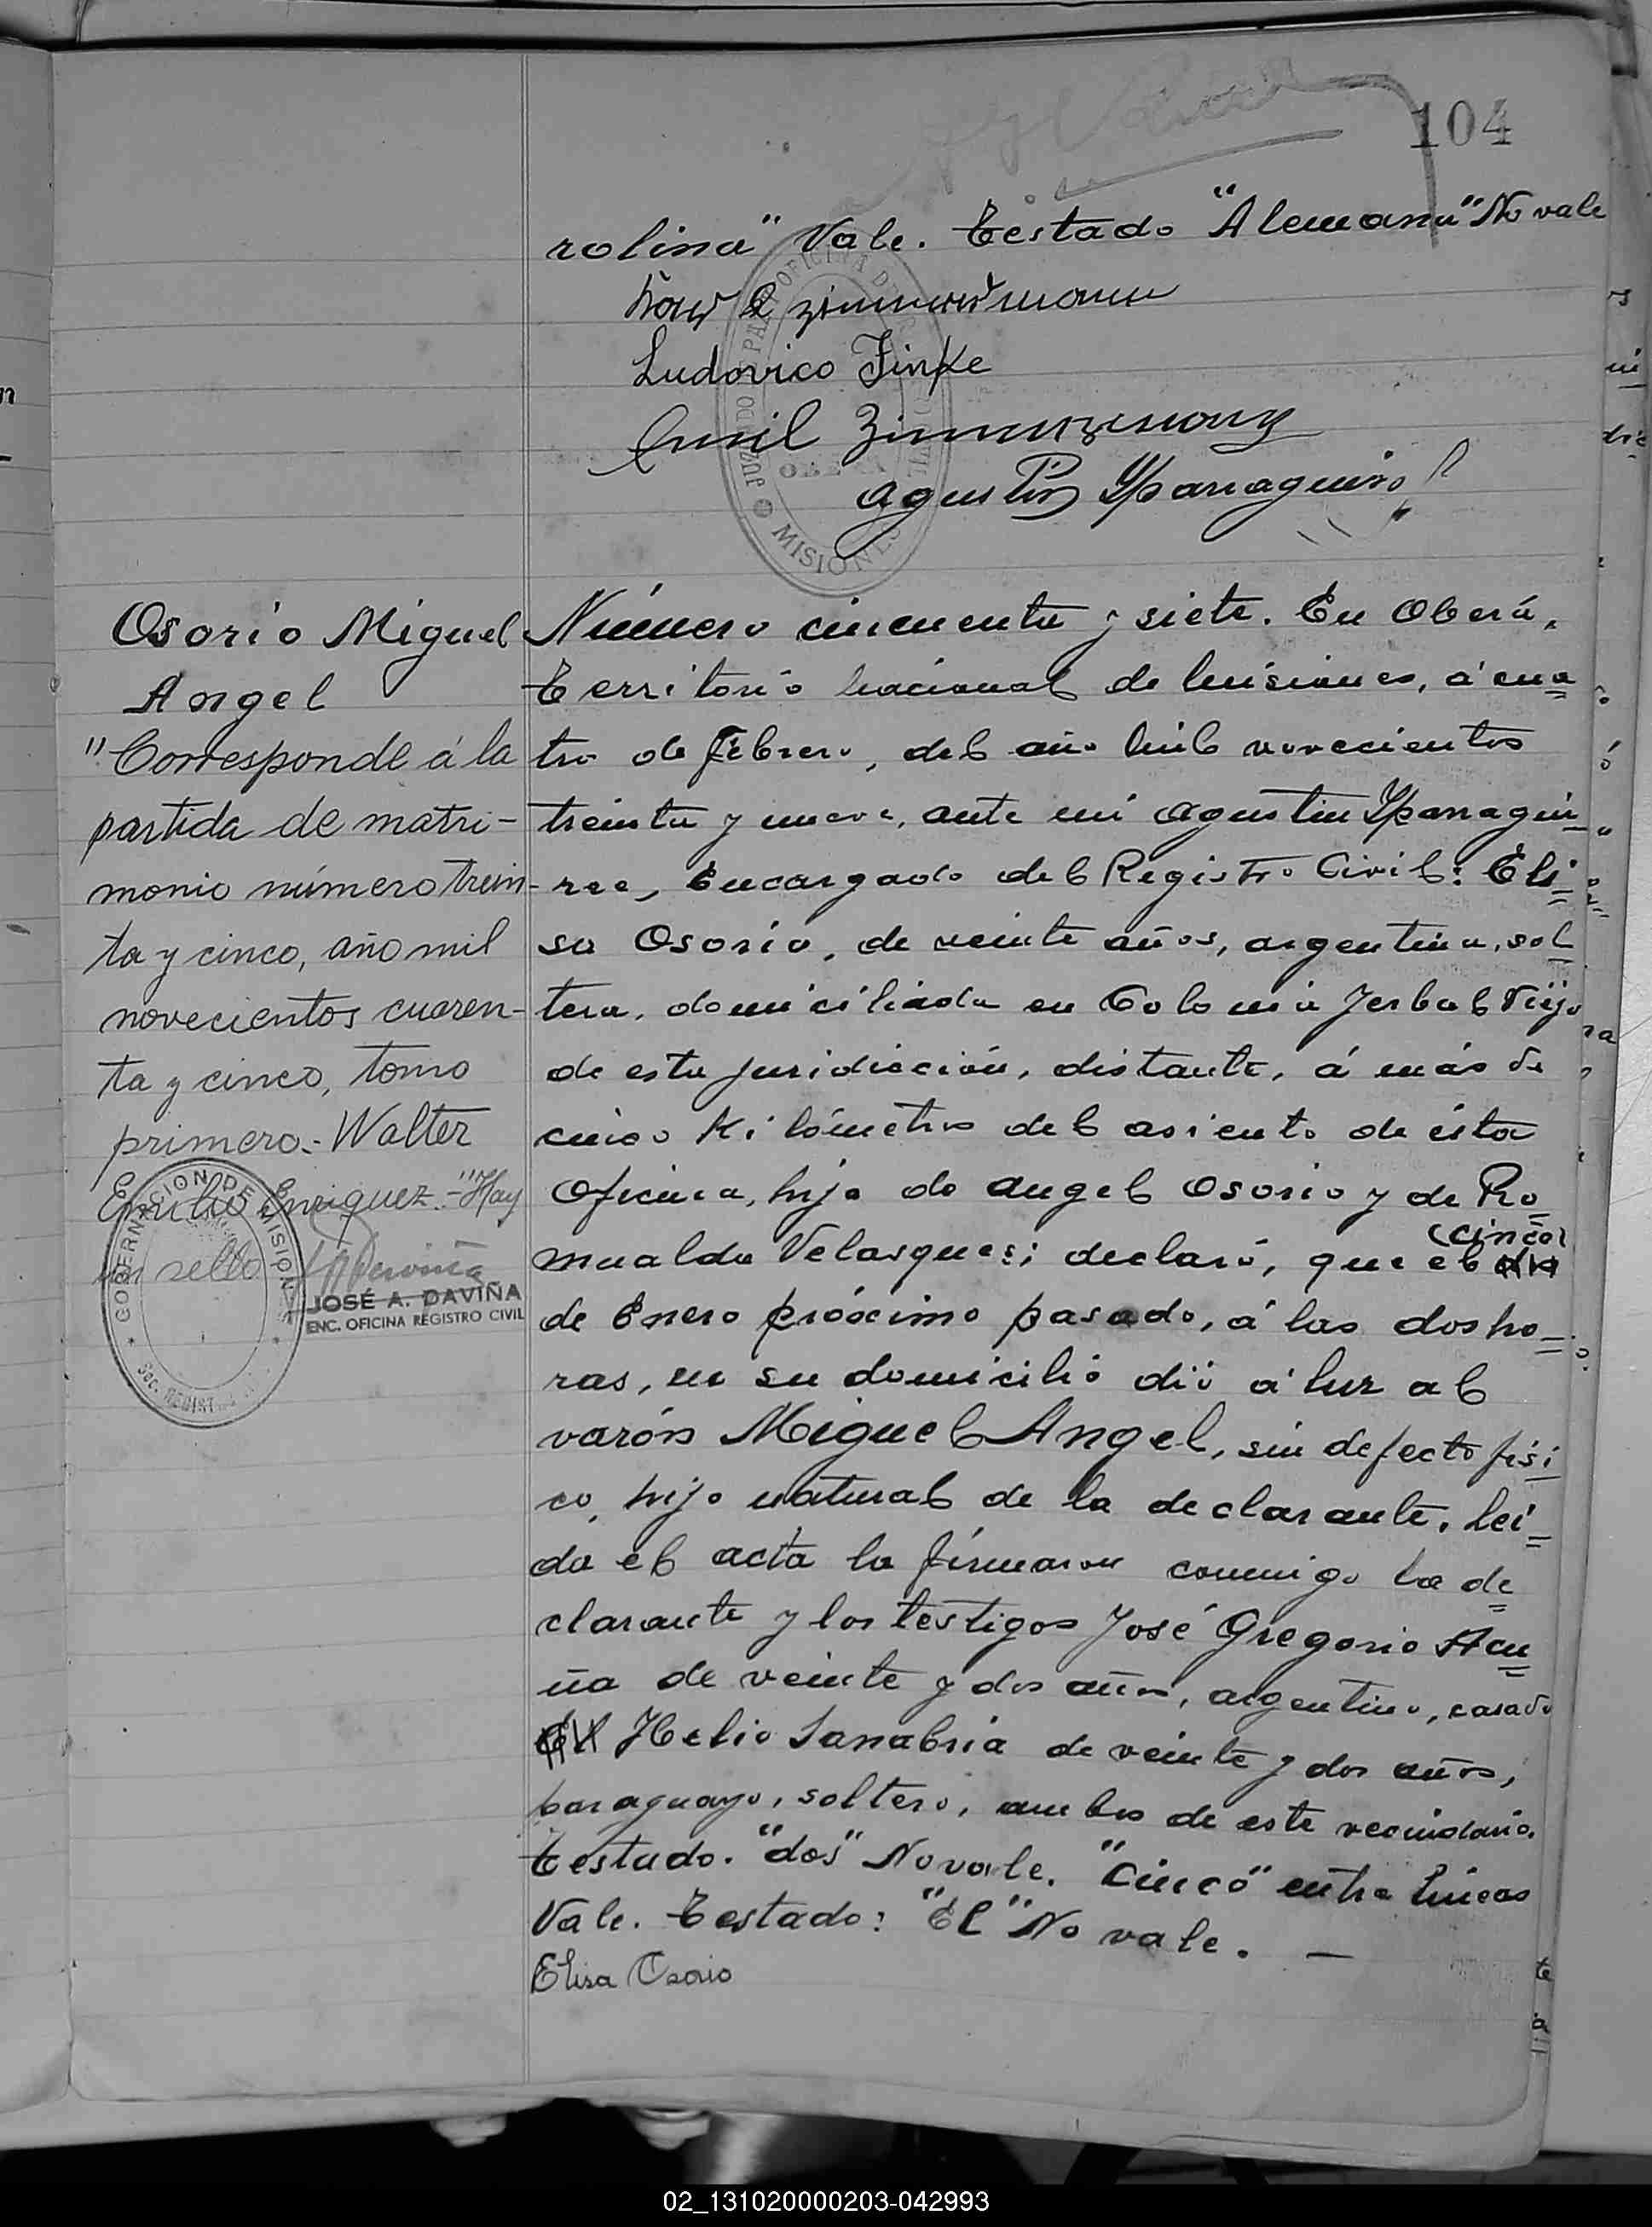 104
rolina" Vale. Testado "Alemana" No vale
Zimmermann
Ludovico Finke
Emil Zimmermann
Agustin Yparraguirre
JUZGADO DE PAZ OFICINA
MISIONES
Osorio Miguel
Angel
"Corresponde á la
partida de matri-
monio número trein-
ta y cinco, año mil
novecientos cuaren-
ta y cinco, tomo
primero.- Walter
Emilio Enriquez.-"Hay
un sello
GOBERNACION DE MISIONES
JOSÉ A. DAVIÑA
ENC. OFICINA REGISTRO CIVIL
Número cincuenta y siete. En Oberá,
Territorio Nacional de Misiones, á cua
tro de Febrero, del año mil novecientos
treinta y nueve, ante mi Agustin Yparragui
rre, Encargado del Registro Civil: Eli
sa Osorio, de veinte años, argentina, sol
tera, domiciliada en Colonia Yerbal Viejo
de esta juridicción, distante, á más de
cinco Kilómetros del asiento de ésta
Oficina, hija de Angel Osorio y de Ro
mualda Velasques; declaró, que el dos (cinco)
de Enero próximo pasado, á las dos ho
ras, en su domicilio dió á luz al
varón Miguel Angel, sin defecto físi
co, hijo natural de la declarante. Lei
da el acta la firmaron conmigo la de
clarante y los testigos José Gregorio Acu
ña de veinte y dos años, argentino, casado
El Helio Sanabria de veinte y dos años,
paraguayo, soltero, ambos de este vecindario.
Testado. "dos" No vale. "Cinco" entre lineas
Vale. Testado: "El" No vale. —
Elisa Osorio
02_131020000203-042993